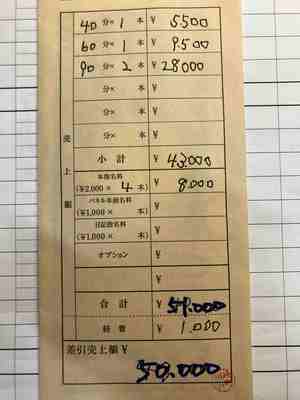 40分× 1 本 ¥ 5500
60分× 1 本 ¥ 9.500
90分× 2 本 ¥ 28000
分× 本 ¥
分× 本 ¥
分× 本 ¥
売上額
小計 ¥ 43.000
本指名料
(¥2,000× 4 本) ¥ 8.000
パネル本指名料
(¥1,000× 本) ¥
日記指名料
(¥1,000× 本) ¥
オプション ¥
¥
合計 ¥ 51.000
経費 ¥ 1.000
差引売上額 ¥
50.000